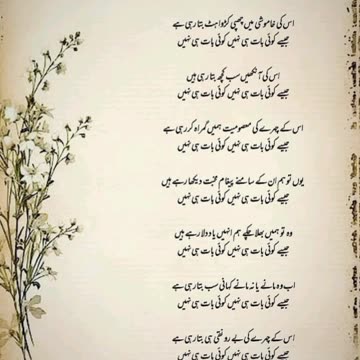 اس کی خاموشی میں چھپی کڑواہٹ بتا رہی ہے
جیسے کوئی بات ہی نہیں کوئی بات ہی نہیں
اس کی آنکھیں سب کچھ بتا رہی ہیں
جیسے کوئی بات ہی نہیں کوئی بات ہی نہیں
اس کے چہرے کی معصومیت ہمیں گمراہ کر رہی ہے
جیسے کوئی بات ہی نہیں کوئی بات ہی نہیں
یوں تو ہم ان کے سامنے پیغام محبت دیکھا رہے ہیں
جیسے کوئی بات ہی نہیں کوئی بات ہی نہیں
وہ تو ہمیں بھلا چکے ہم انہیں یاد دلا رہے ہیں
جیسے کوئی بات ہی نہیں کوئی بات ہی نہیں
اب وہ مانے یا نہ مانے کہانی سب بتا رہی ہے
جیسے کوئی بات ہی نہیں کوئی بات ہی نہیں
اس کے چہرے کی بے رونقی ہی بتا رہی ہے
جیسے کوئی بات ہی نہیں کوئی بات ہی نہیں